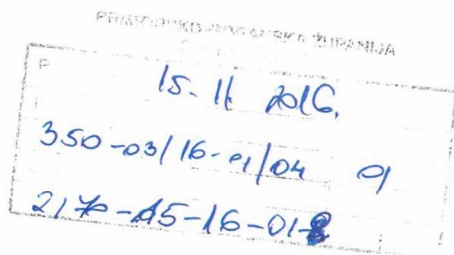 PRIMORSKO-GORANSKA ŽUPANIJA
P 15. 11 2016.
350-03/16-01/04 01
2170-15-16-01-8